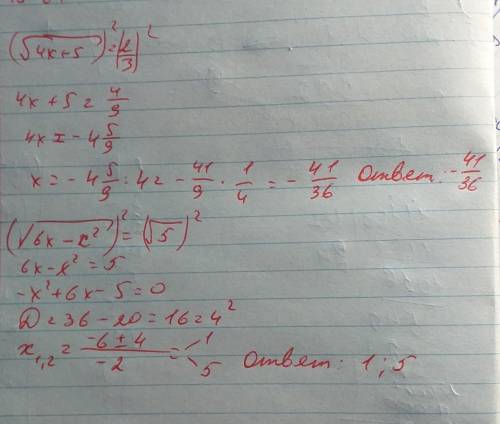 (√4x+5)² = (2/3)²
4x + 5 = 4/9
4x = -4 5/9
x = -4 5/9 : 4 = -41/9 · 1/4 = -41/36 Ответ: -41/36
(√6x - x²)² = (√5)²
6x - x² = 5
-x² + 6x - 5 = 0
D = 36 - 20 = 16 = 4²
x₁,₂ = (-6 ± 4)/-2 = 1 5 Ответ: 1; 5